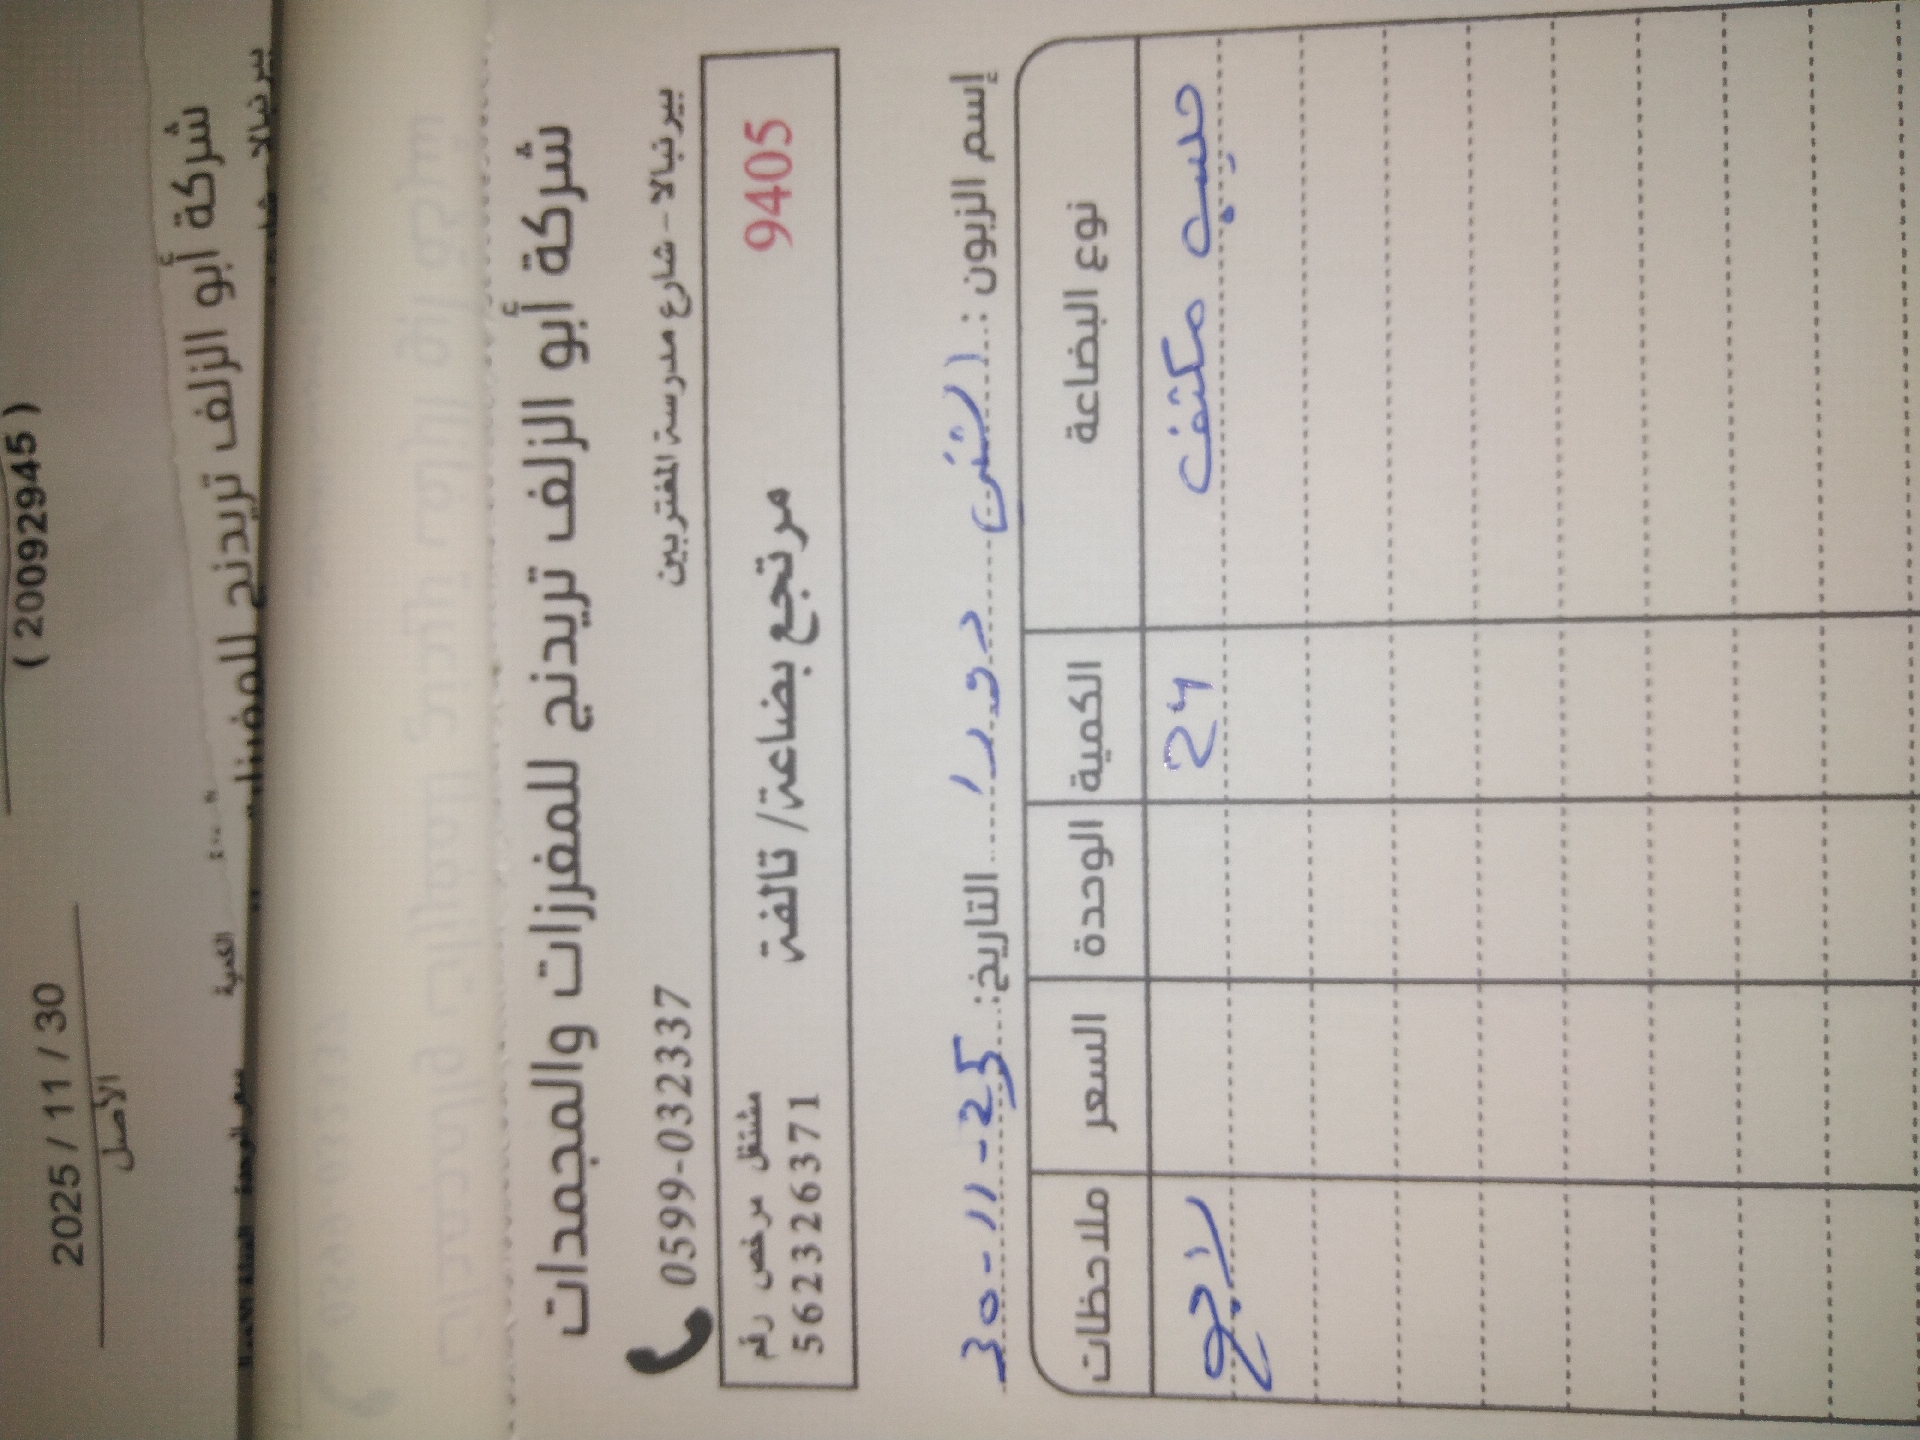 ( 200929245 )
2025 / 11 / 30
الأصل
شركة أبو الزلف تريدنج للمفرزات
بيرنبالا
الكمية
شركة أبو الزلف تريدنج للمفرزات والمجمدات
بيرنبالا - شارع مدرسة المغتربين
0599-032337
9405
مرتجع بضاعة/ تالفة
مشتغل مرخص رقم
562326371
إسم الزبون : الثنى دورا التاريخ: 30-11-25
نوع البضاعة الكمية الوحدة السعر ملاحظات
حليب مكثف 24 راجع